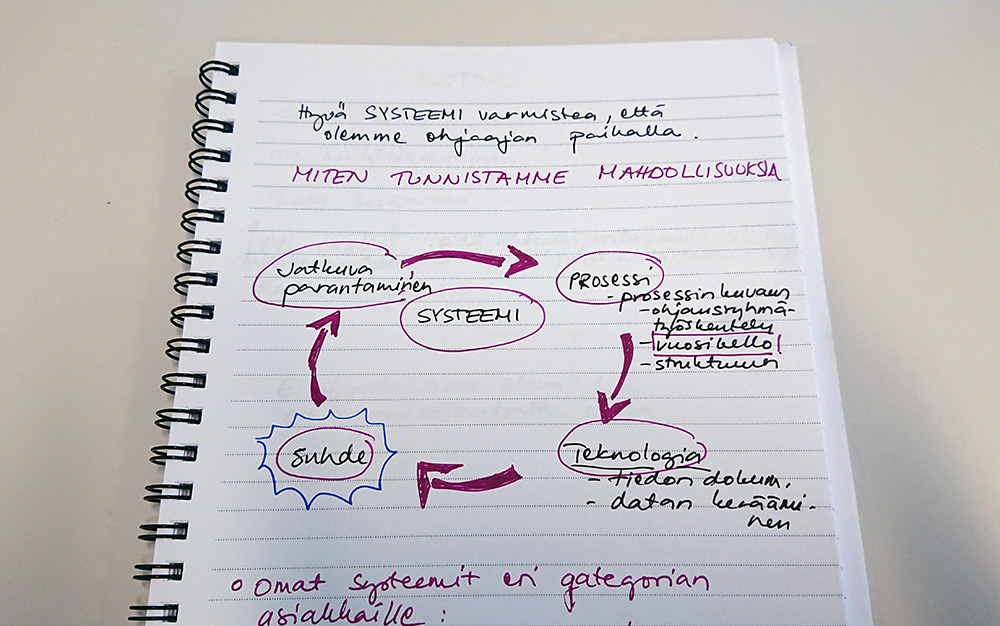 Hyvä SYSTEEMI varmistaa, että
olemme ohjaajan paikalla.
MITEN TUNNISTAMME MAHDOLLISUUKSIA
Jatkuva
parantaminen
SYSTEEMI
PROSESSI
- prosessin kuvaus
- ohjausryhmä-
työskentely
- vuosikello!
- struktuuri
Teknologia
- tiedon dokum.
- datan keräämi-
nen
Suhde
o Omat systeemit eri gategorian
asiakkaille: